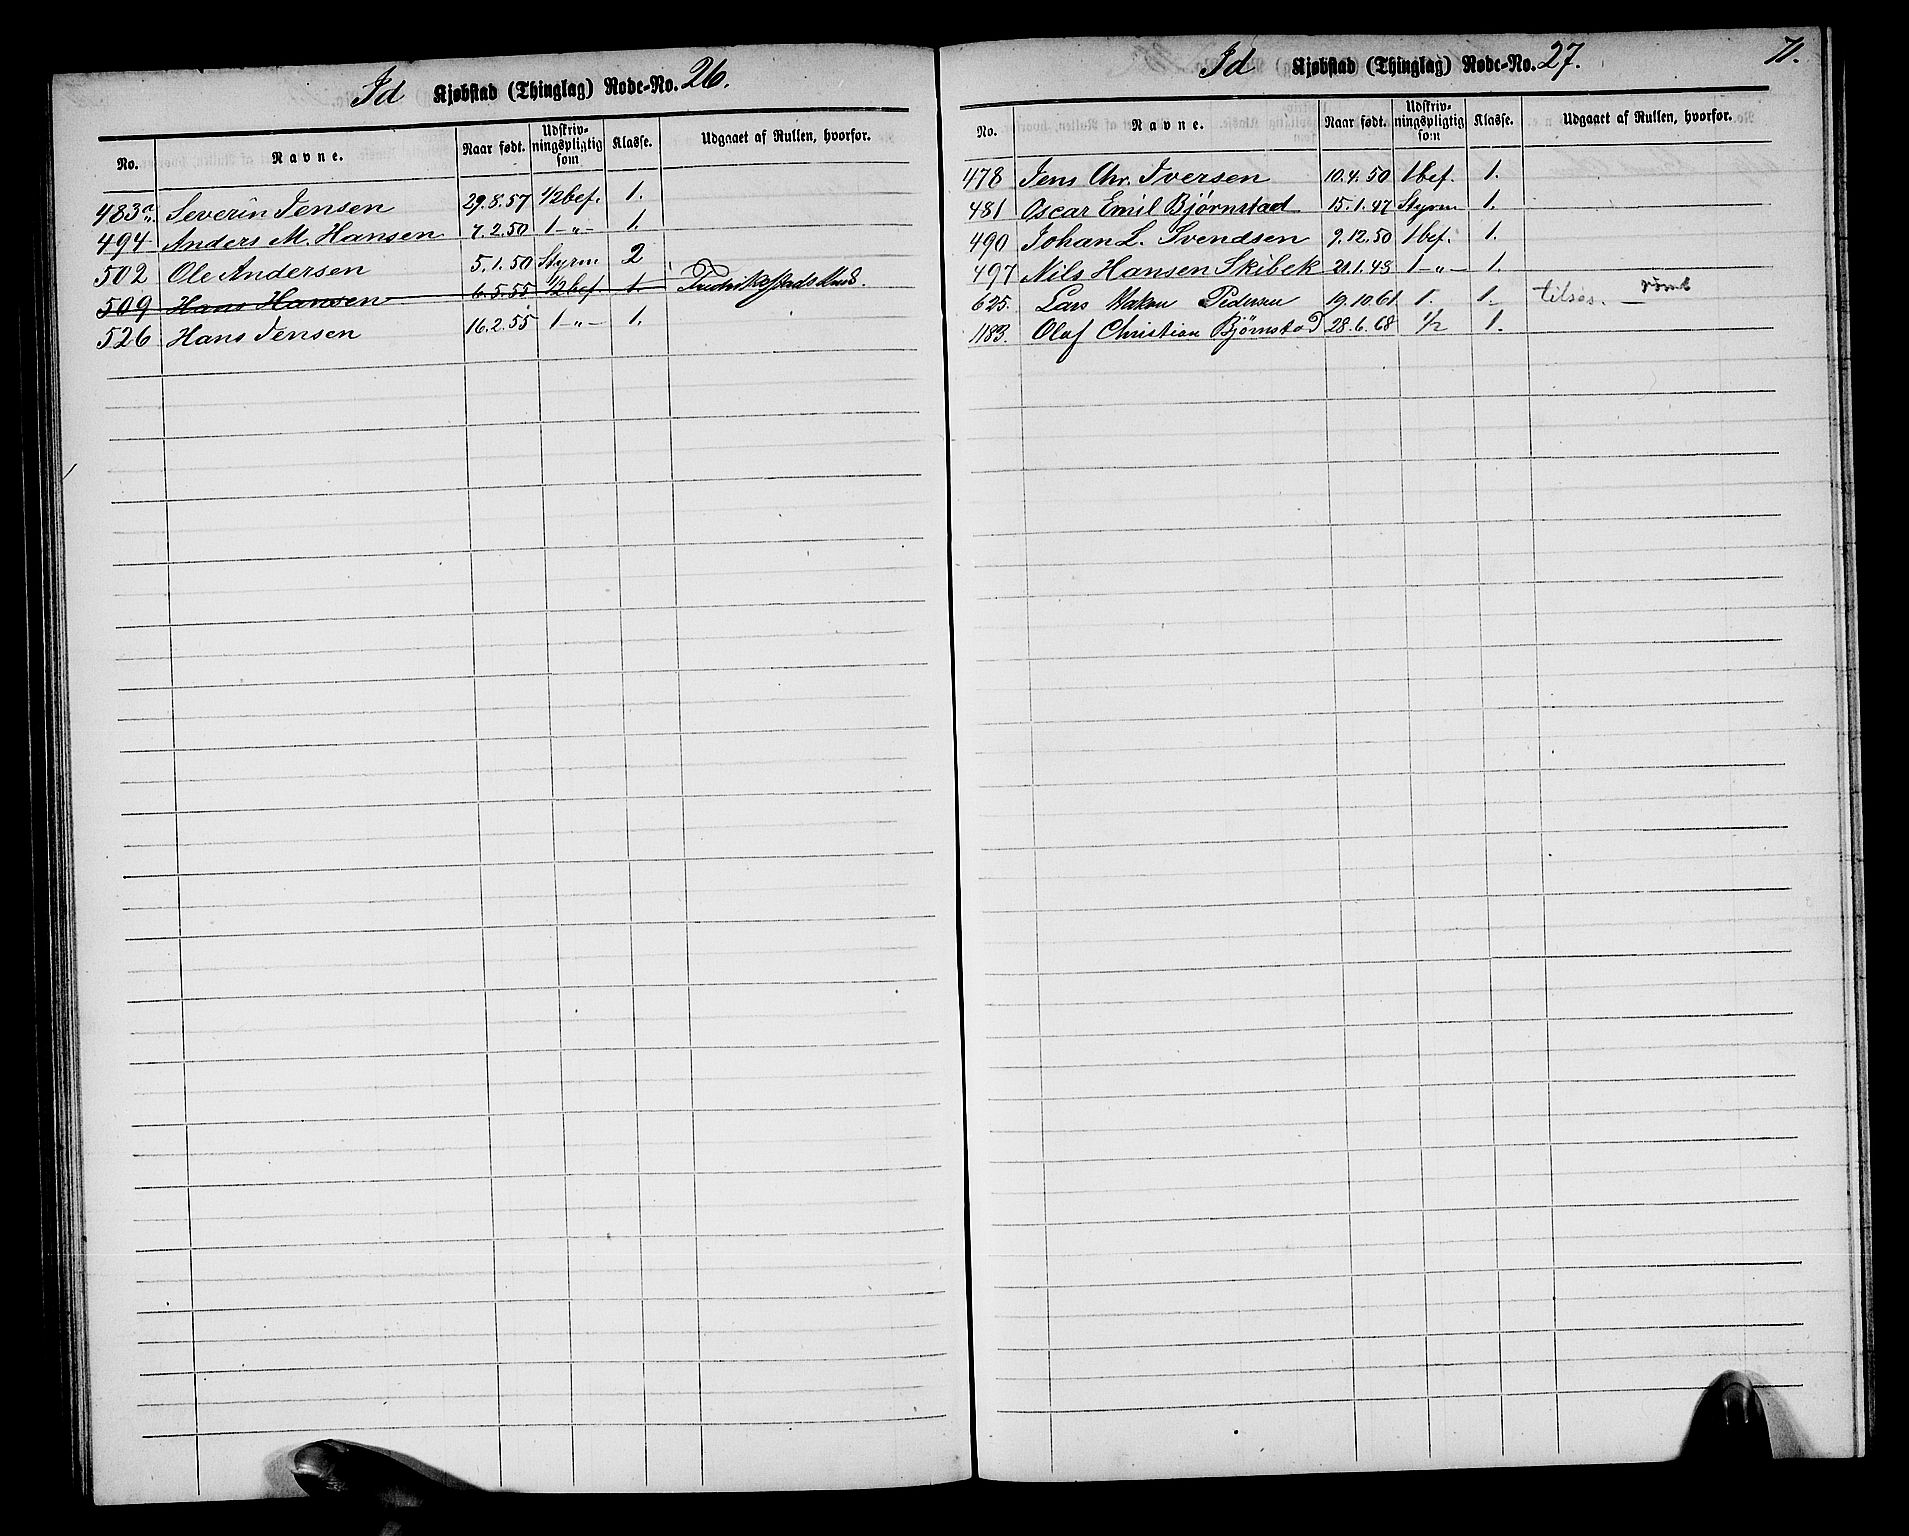 Id Kjøbstad (Thinglag) Rode-No. 26.
No. Navne. Naar født. Udskriv-ningspligtig som Klasse. Udgaaet af Rullen, hvorfor.
483a Severin Jensen 29.8.57 1/2 bef. 1.
494 Anders M. Hansen 7.2.50 1 -„- 1.
502 Ole Andersen 5.1.50 Styrm 2
509 Hans Hansen 6.5.55 1/2 bef. 1.
526 Hans Jensen 16.2.55 1 -„- 1.
Id Kjøbstad (Thinglag) Rode-No. 27. 71.
No. Navne. Naar født. Udskriv-ningspligtig som Klasse. Udgaaet af Rullen, hvorfor.
478 Jens Chr. Iversen 10.4.50 1 bef. 1.
481 Oscar Emil Bjørnstad 15.1.47 Styrm 1.
490 Johan L. Svendsen 9.12.50 1 bef. 1.
497 Nils Hansen Skibek 21.1.48 1 -„- 1.
625. Lars Hakon Pedersen 19.10.61 1. 1. tilsøs. — rømt
1183. Olaf Christian Bjørnstad 28.6.68 1/2 1.